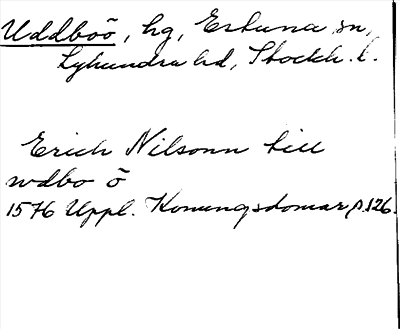 Uddboö, hg, Estuna sn,
Lyhundra hd, Stockh. l.
Erich Nilsonn till
wdbo ö
1576 Uppl. Konungsdomar p.126.